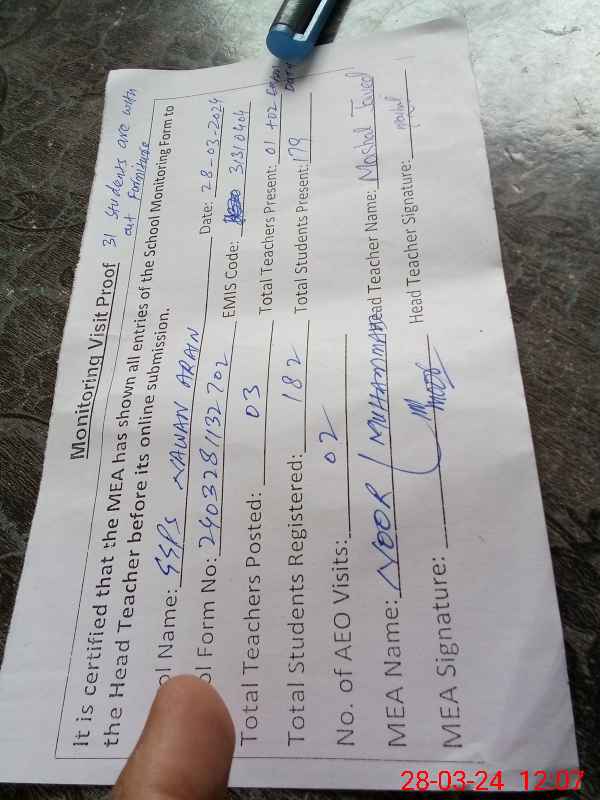 Monitoring Visit Proof 31 students are with out furniture
It is certified that the MEA has shown all entries of the School Monitoring Form to
the Head Teacher before its online submission.
ol Name: GGPS NAWAN ARAIN Date: 28-03-2024
ol Form No: 2403281132702 EMIS Code: 31310404
Total Teachers Posted: 03 Total Teachers Present: 01 + 02
Total Students Registered: 182 Total Students Present: 179
No. of AEO Visits: 02
MEA Name: NOOR MUHAMMAD ead Teacher Name: Mashal Javed
MEA Signature: Head Teacher Signature:
28-03-24 12:07